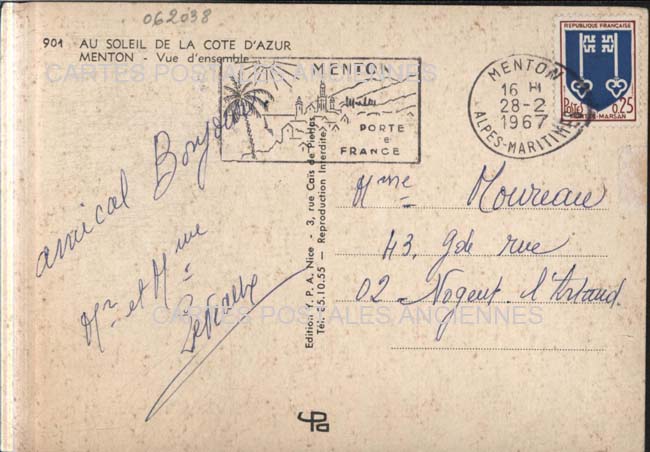 062038
901 AU SOLEIL DE LA COTE D'AZUR
MENTON - Vue d'ensemble
CARTES POSTALES ANCIENNES
MENTON
PORTE
de
FRANCE
MENTON
16 H
28-2
1967
ALPES-MARITIMES
REPUBLIQUE FRANÇAISE
POSTES 0,25
MONT-DE-MARSAN
amical Bonjour
Mr et Mme
Edition Y. P. A. Nice - 3, rue Caïs de Pierlas
Tél. 85.10.55 - Reproduction Interdite
Mme Moureau
43, gde rue
02 Nogent l'Artaud
CARTES POSTALES ANCIENNES